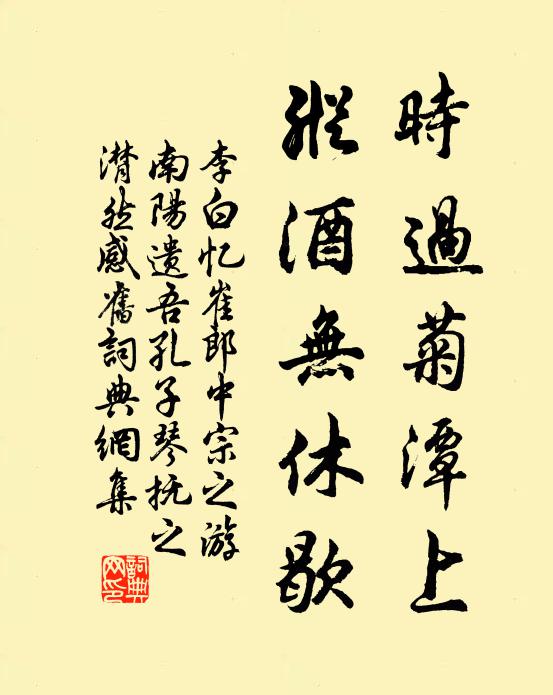 時過菊潭上
縱酒無休歇
李白忆崔郎中宗之游
南陽遺吾孔子琴抚之
潸然感舊詞典網集
詞典
网印